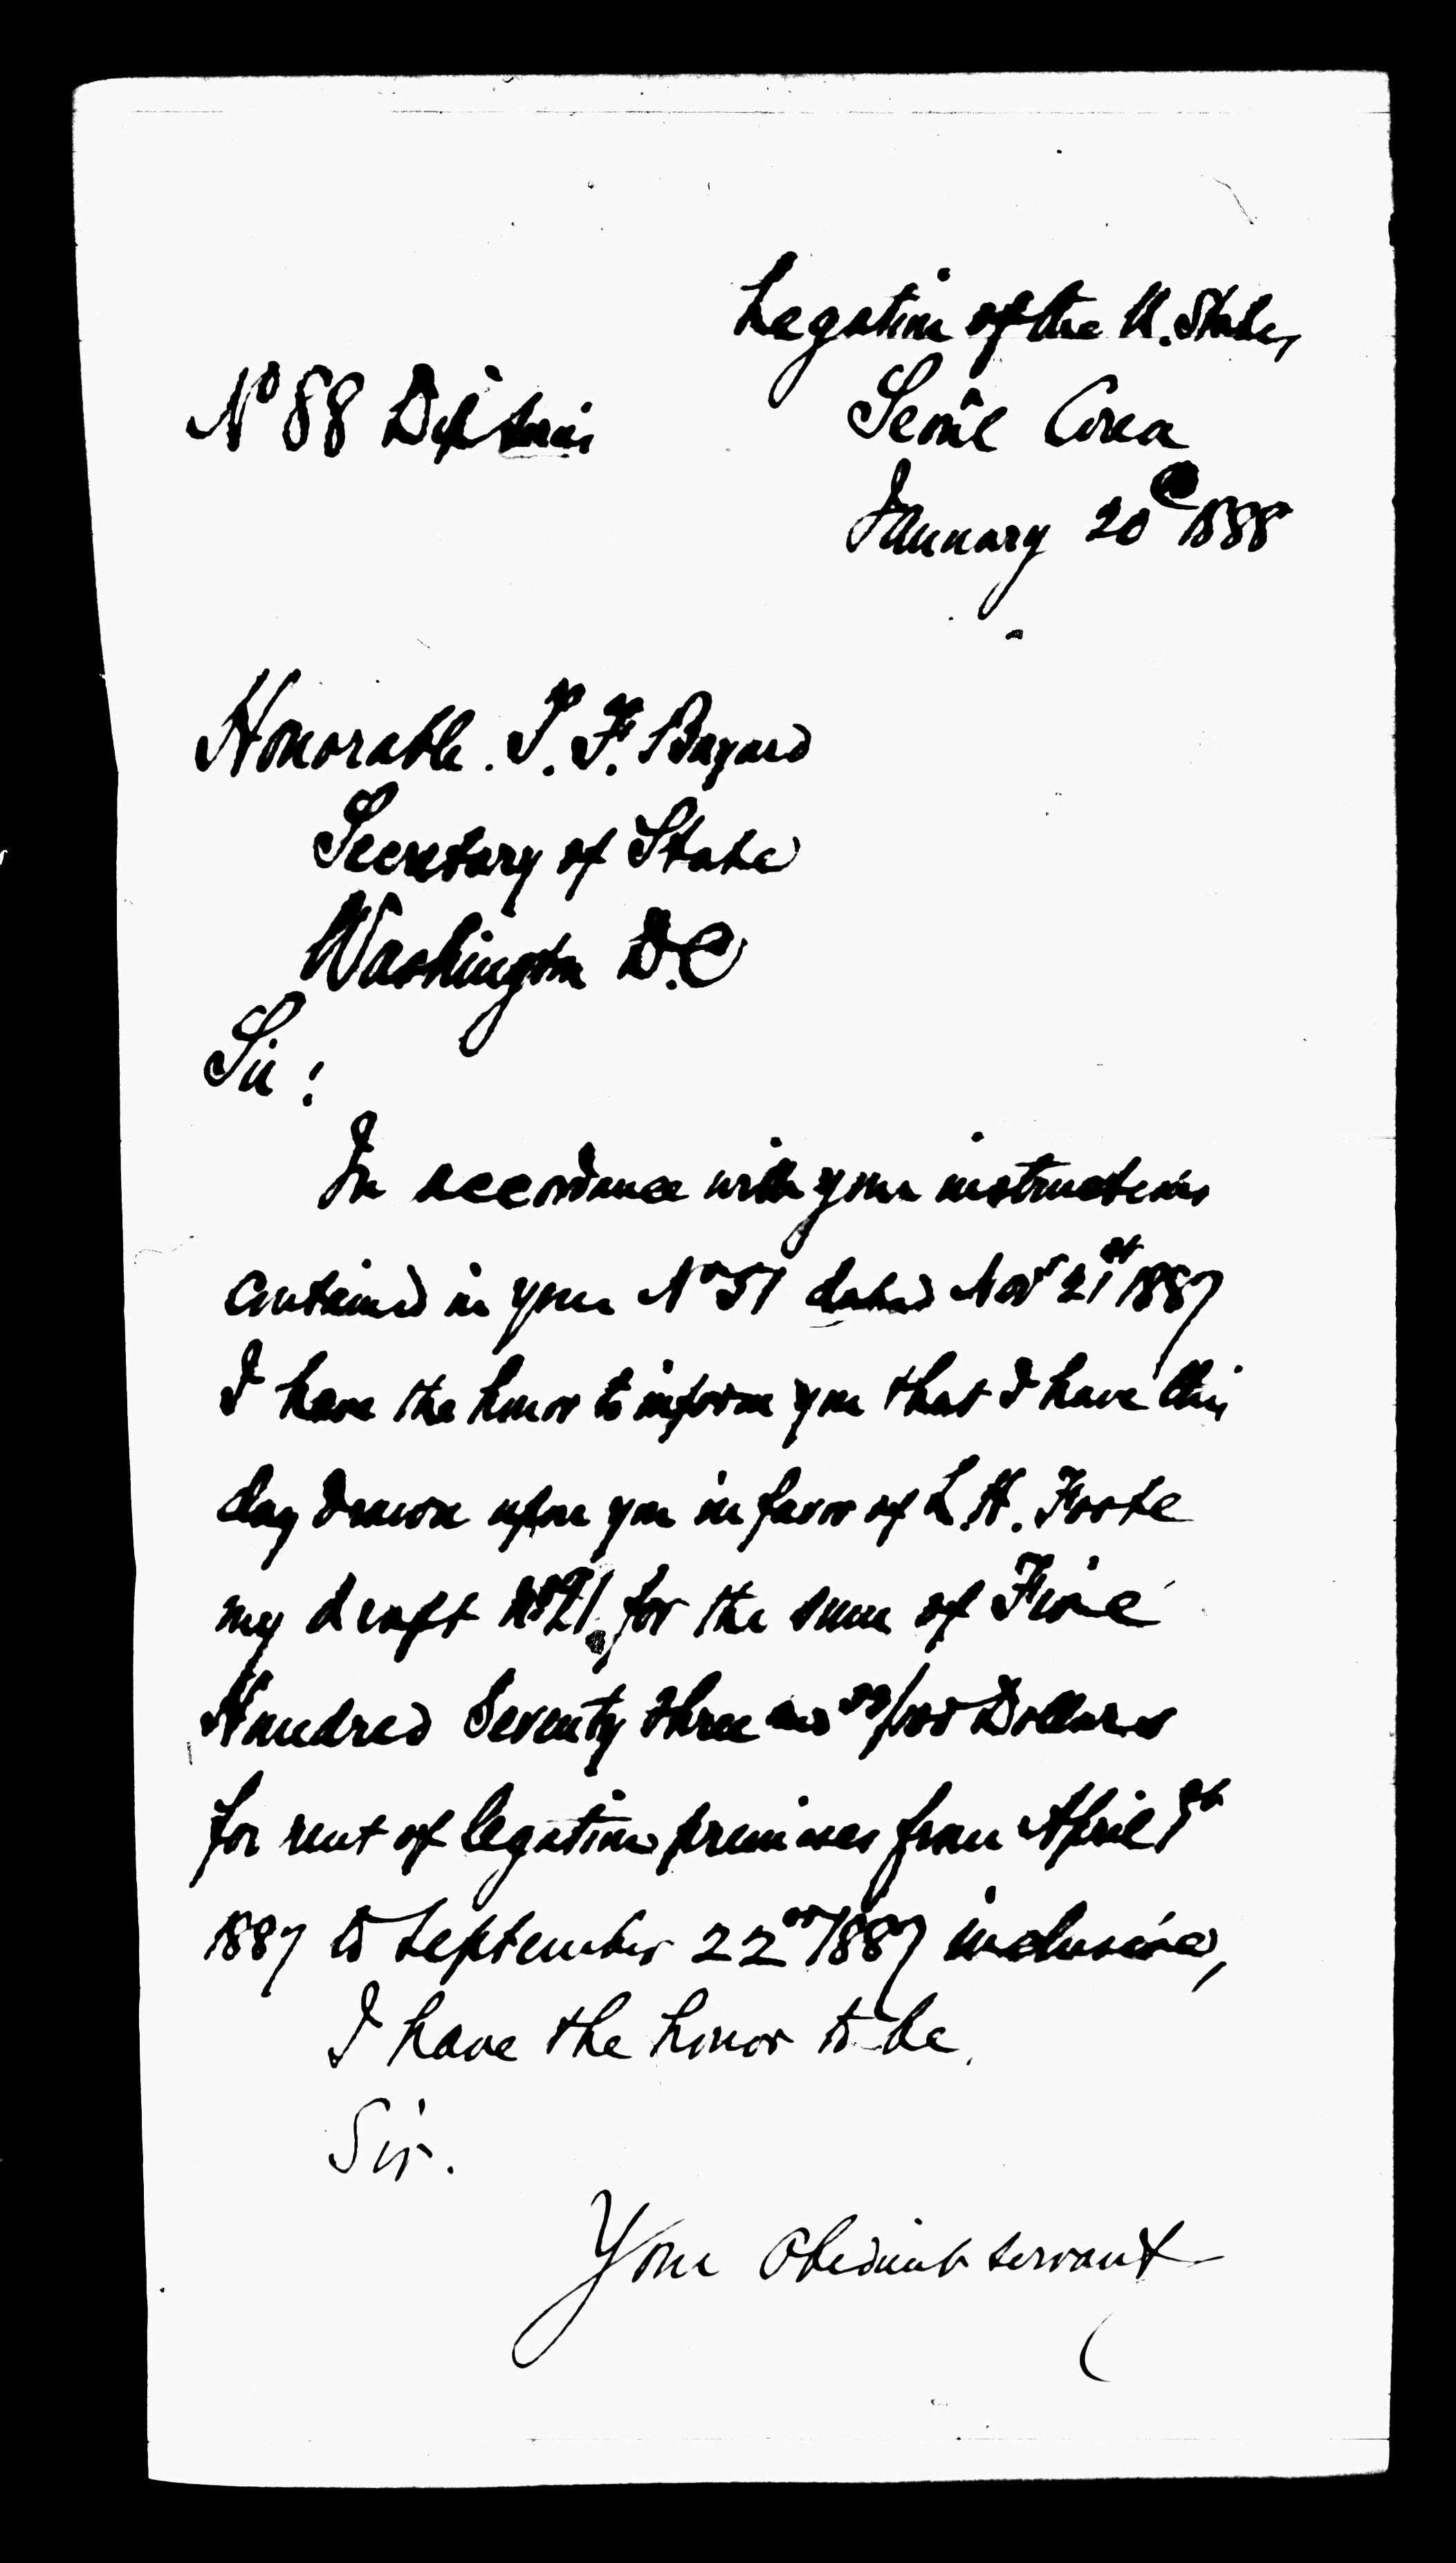 Legation of the U. States
Nº 88 Dip Series
Seoul Corea
January 20 1888
Honorable T. F. Bayard
Secretary of State
Washington D.C
Sir :
In accordance with your instructions
contained in your Nº 51 dated Novr 21st 1887
I have the honor to inform you that I have this
day drawn upon you in favor of L. H. Foote
my draft Nº 21 for the sum of Five
Hundred Seventy three and /100 Dollars
for rent of legation premises from April 1st
1887 to September 22nd 1887 inclusive,
I have the honor to be
Sir.
Your Obedient servant